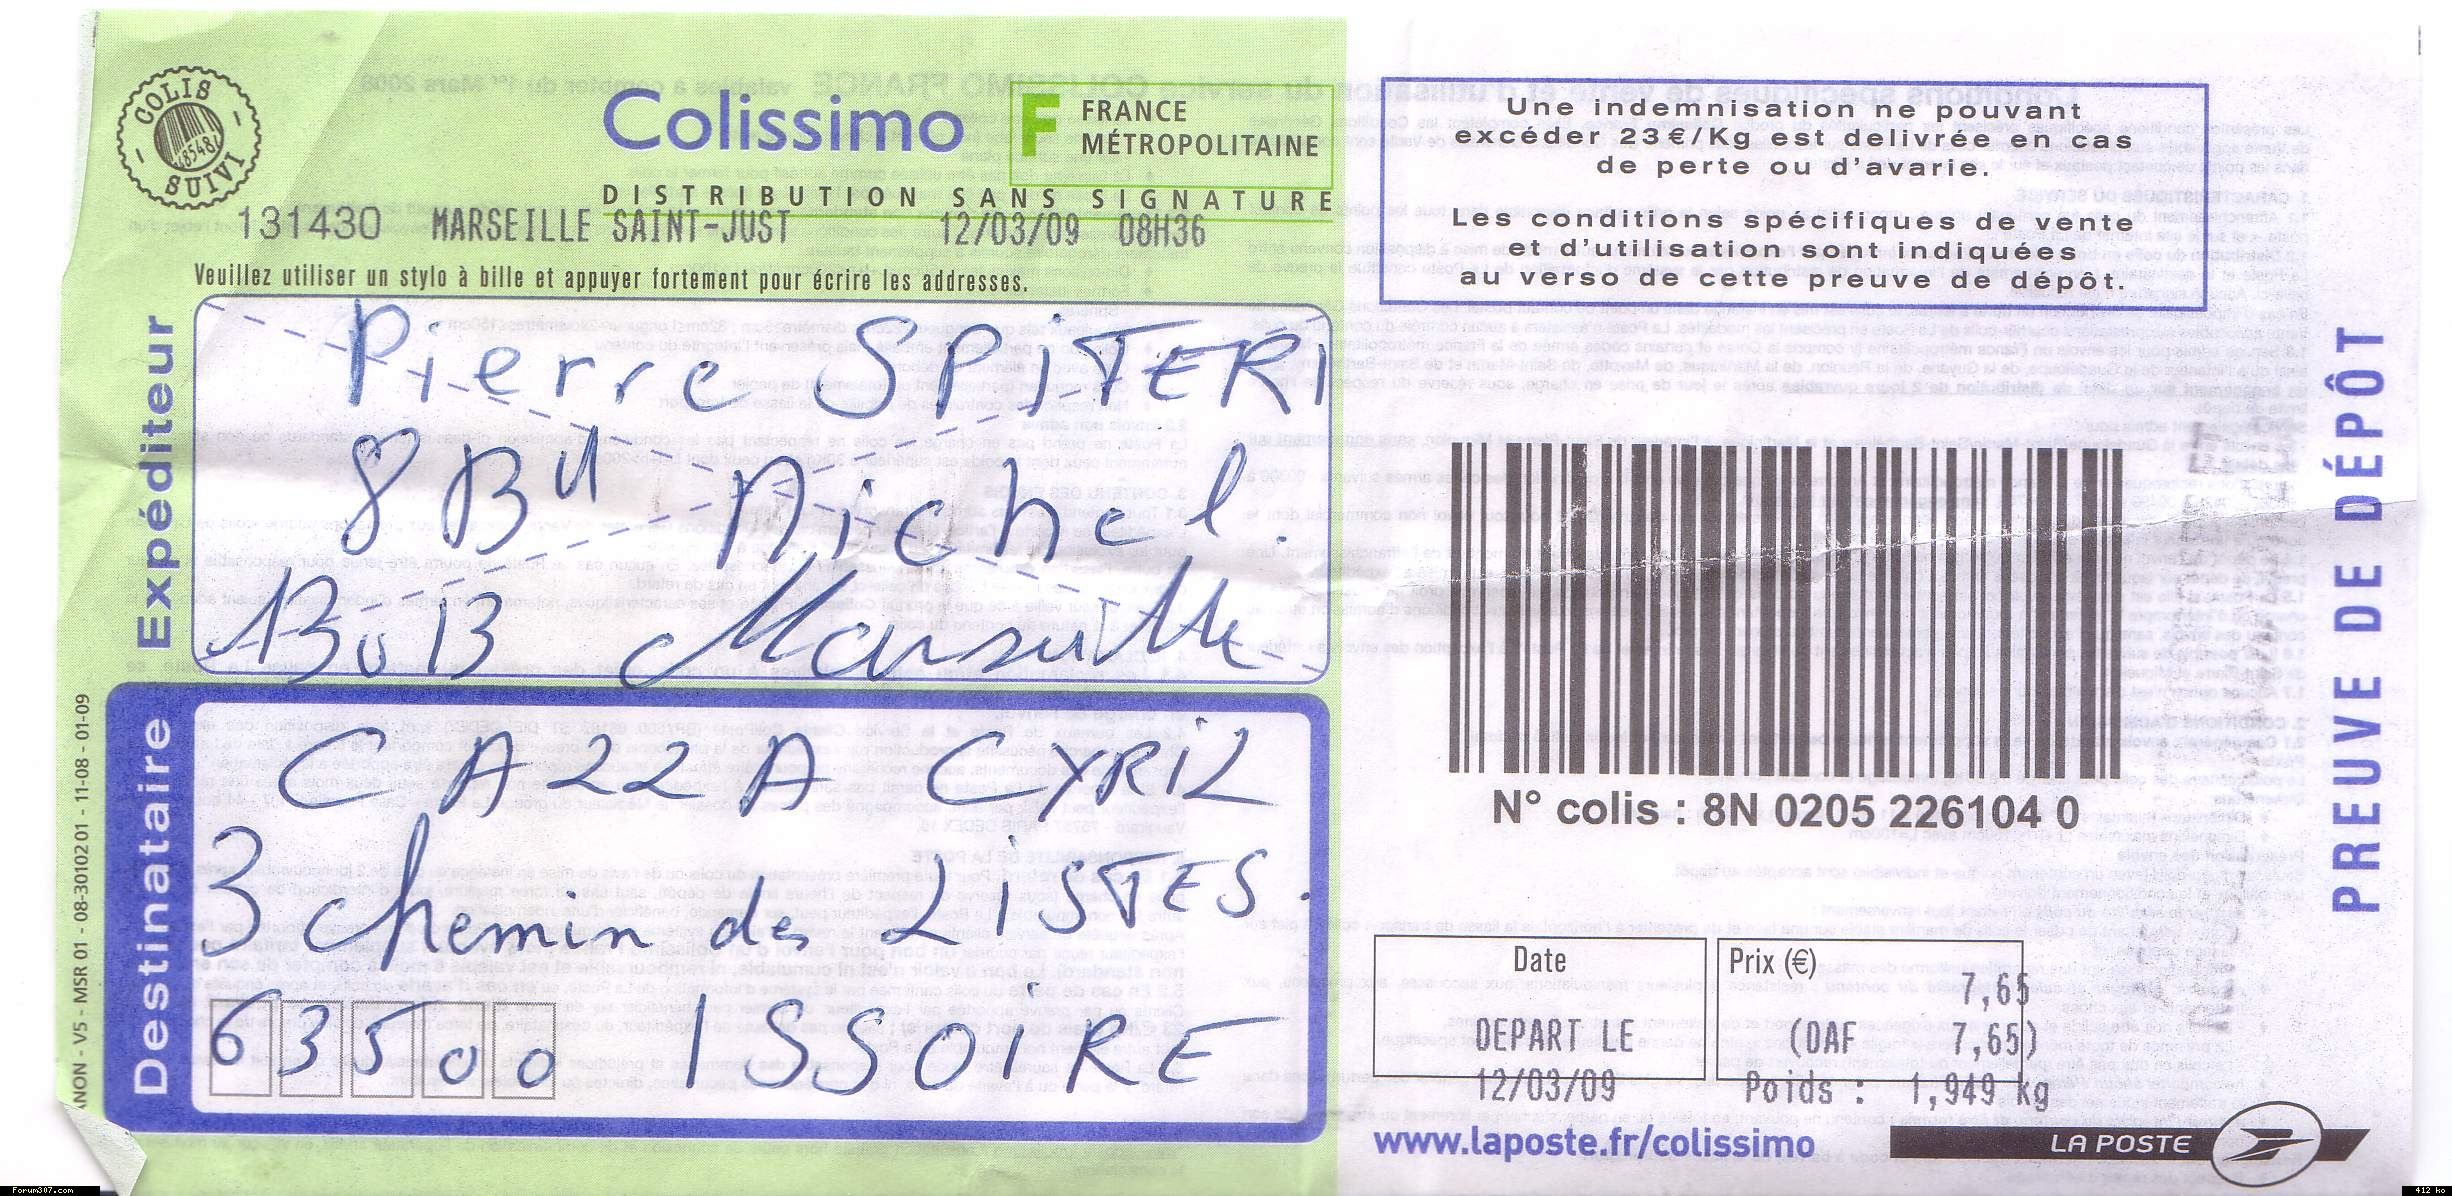 COLIS
SUIVI
Colissimo F FRANCE MÉTROPOLITAINE
DISTRIBUTION SANS SIGNATURE
131430 MARSEILLE SAINT-JUST 12/03/09 08H36
Veuillez utiliser un stylo à bille et appuyer fortement pour écrire les adresses.
Expéditeur
Pierre SPITERI
8 Bd Michel.
13013 Marseille
Destinataire
CAZZA CYRIL
3 chemin des LISTES.
63500 ISSOIRE
- V5 - MSR 01 - 08-30102 01 - 11-08 - 01-09
Une indemnisation ne pouvant
excéder 23€/Kg est delivrée en cas
de perte ou d'avarie.
Les conditions spécifiques de vente
et d'utilisation sont indiquées
au verso de cette preuve de dépôt.
PREUVE DE DÉPÔT
N° colis : 8N 0205 226104 0
Date
DEPART LE
12/03/09
Prix (€)
7,65
(DAF 7,65)
Poids : 1,949 kg
www.laposte.fr/colissimo
LA POSTE
Forum307.com
412 ko